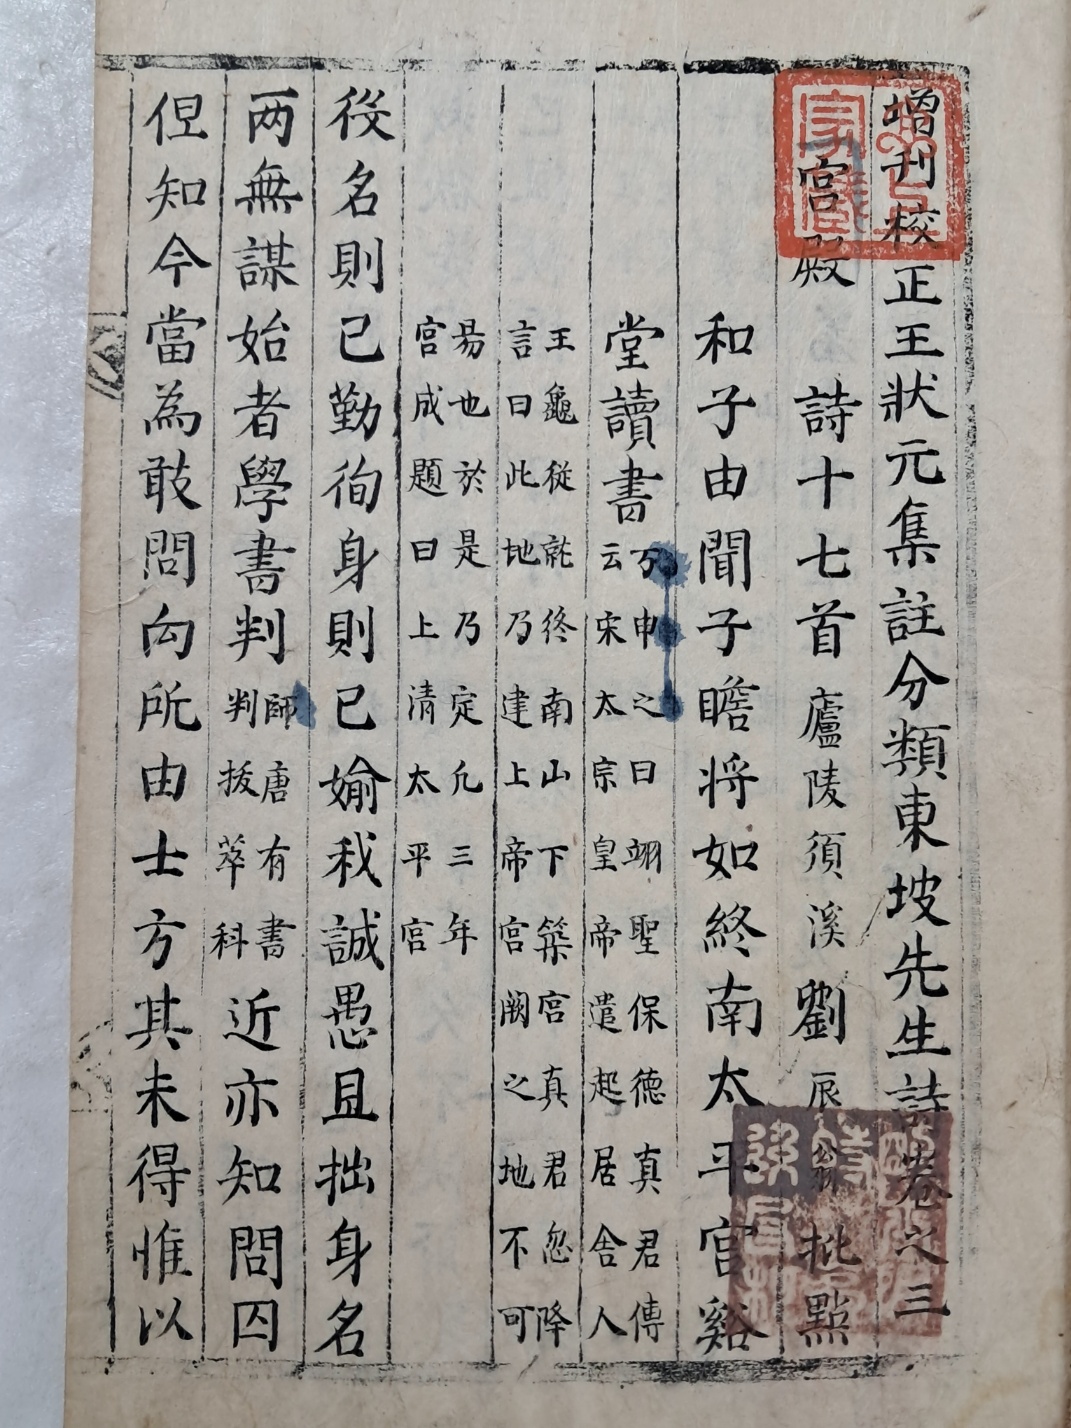 増刊校正王狀元集註分類東坡先生詩卷之三
宮殿 詩十七首 廬陵須溪劉辰翁批點
和子由聞子瞻將如終南太平宮谿
堂讀書
申之曰翊聖保德真君傳
云宋太宗皇帝遣起居舍人
王龜從就終南山下築宮真君忽降
言曰此地乃建上帝宮闕之地不可
昜也於是乃定凡三年
宮成題曰上清太平宮
役名則已勤徇身則已媮我誠愚且拙身名
兩無謀始者學書判
師唐有書
判拔萃科
近亦知問囚
但知今當為敢問向所由士方其未得惟以